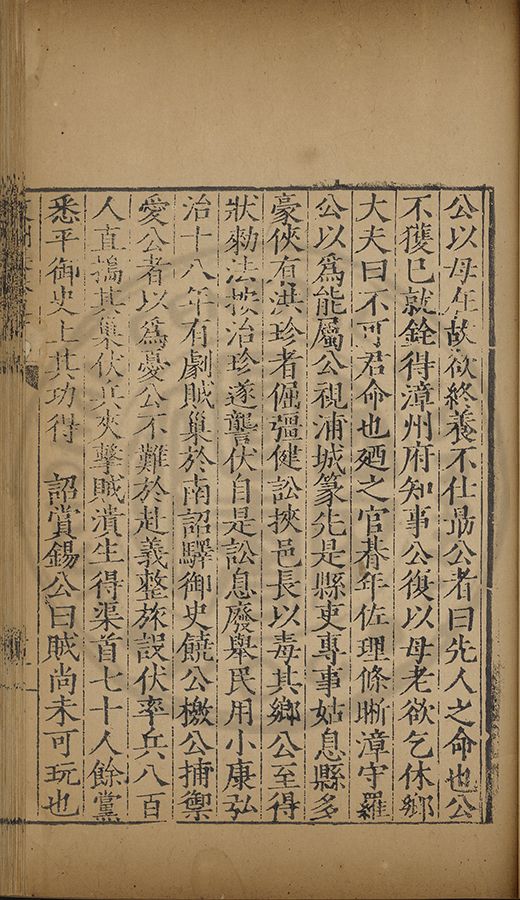 公以母年故欲終養不仕勗公者曰先人之命也公
不獲已就銓得漳州府知事公復以母老欲乞休鄉
大夫曰不可君命也廼之官朞年佐理條晰漳守羅
公以爲能屬公視浦城篆先是縣吏專事姑息縣多
豪俠有洪珍者倔彊健訟挾邑長以毒其鄉公至得
狀勑法按治珍遂讋伏自是訟息廢舉民用小康弘
治十八年有劇賊巢於南詔驛御史饒公檄公捕禦
愛公者以爲憂公不難於赴義整旅設伏率兵八百
人直擣其巢伏兵夾擊賊潰生得渠首七十人餘黨
悉平御史上其功得　詔賞錫公曰賊尚未可玩也